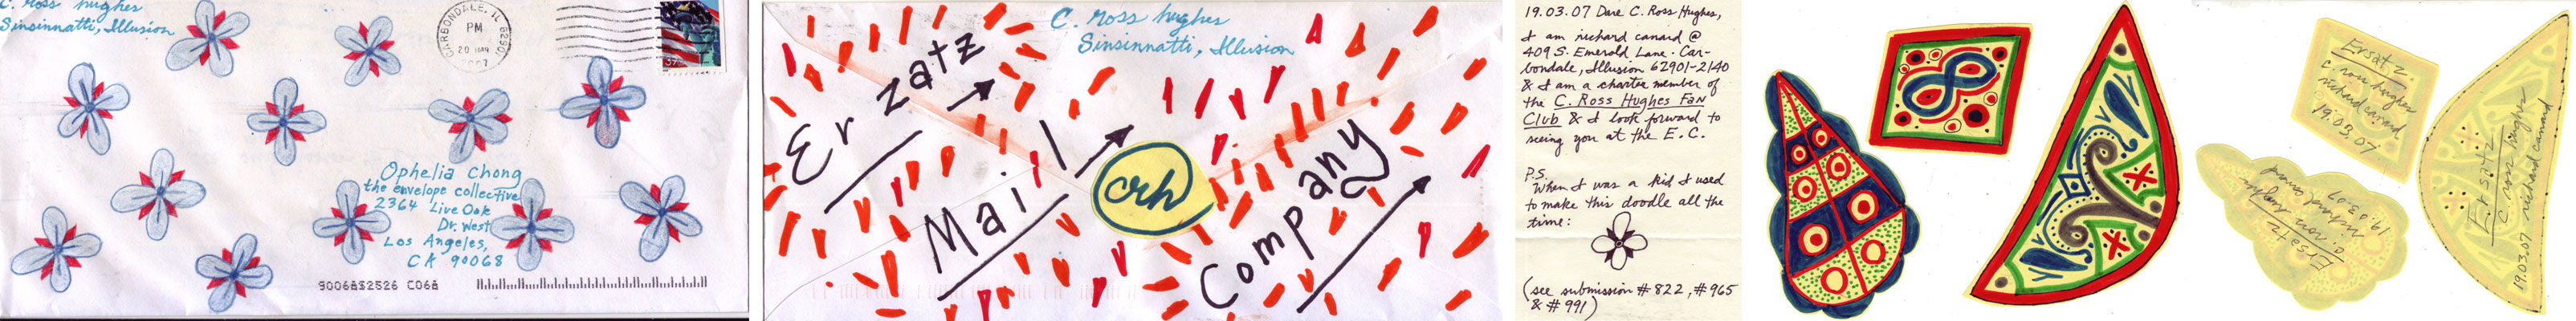 C. Ross hughes
Sinsinnatti, Illusion
CARBONDALE, IL 62901
PM
20 MAR
2007
37
Ophelia Chong
the envelope collective
2364 Live Oak
Dr. West
Los Angeles,
CA 90068
9006852526 C068
C. ross hughes
Sinsinnatti, Illusion
Er zatz
Mail
crh
Company
19.03.07 Dare C. Ross Hughes,
I am richard canard @
409 S. Emerald Lane. Car-
bondale, Illusion 62901-2140
& I am a charter member of
the C. Ross Hughes Fan
Club & I look forward to
seeing you at the E.C.
P.S.
When I was a kid I used
to make this doodle all the
time:
(see submission #822, #965
& #991)
Ersatz
c. ross hughes
richard canard
19.03.07
Ersatz
c. ross hughes
richard canard
19.03.07
Ersatz
c. ross hughes
19.03.07 richard canard